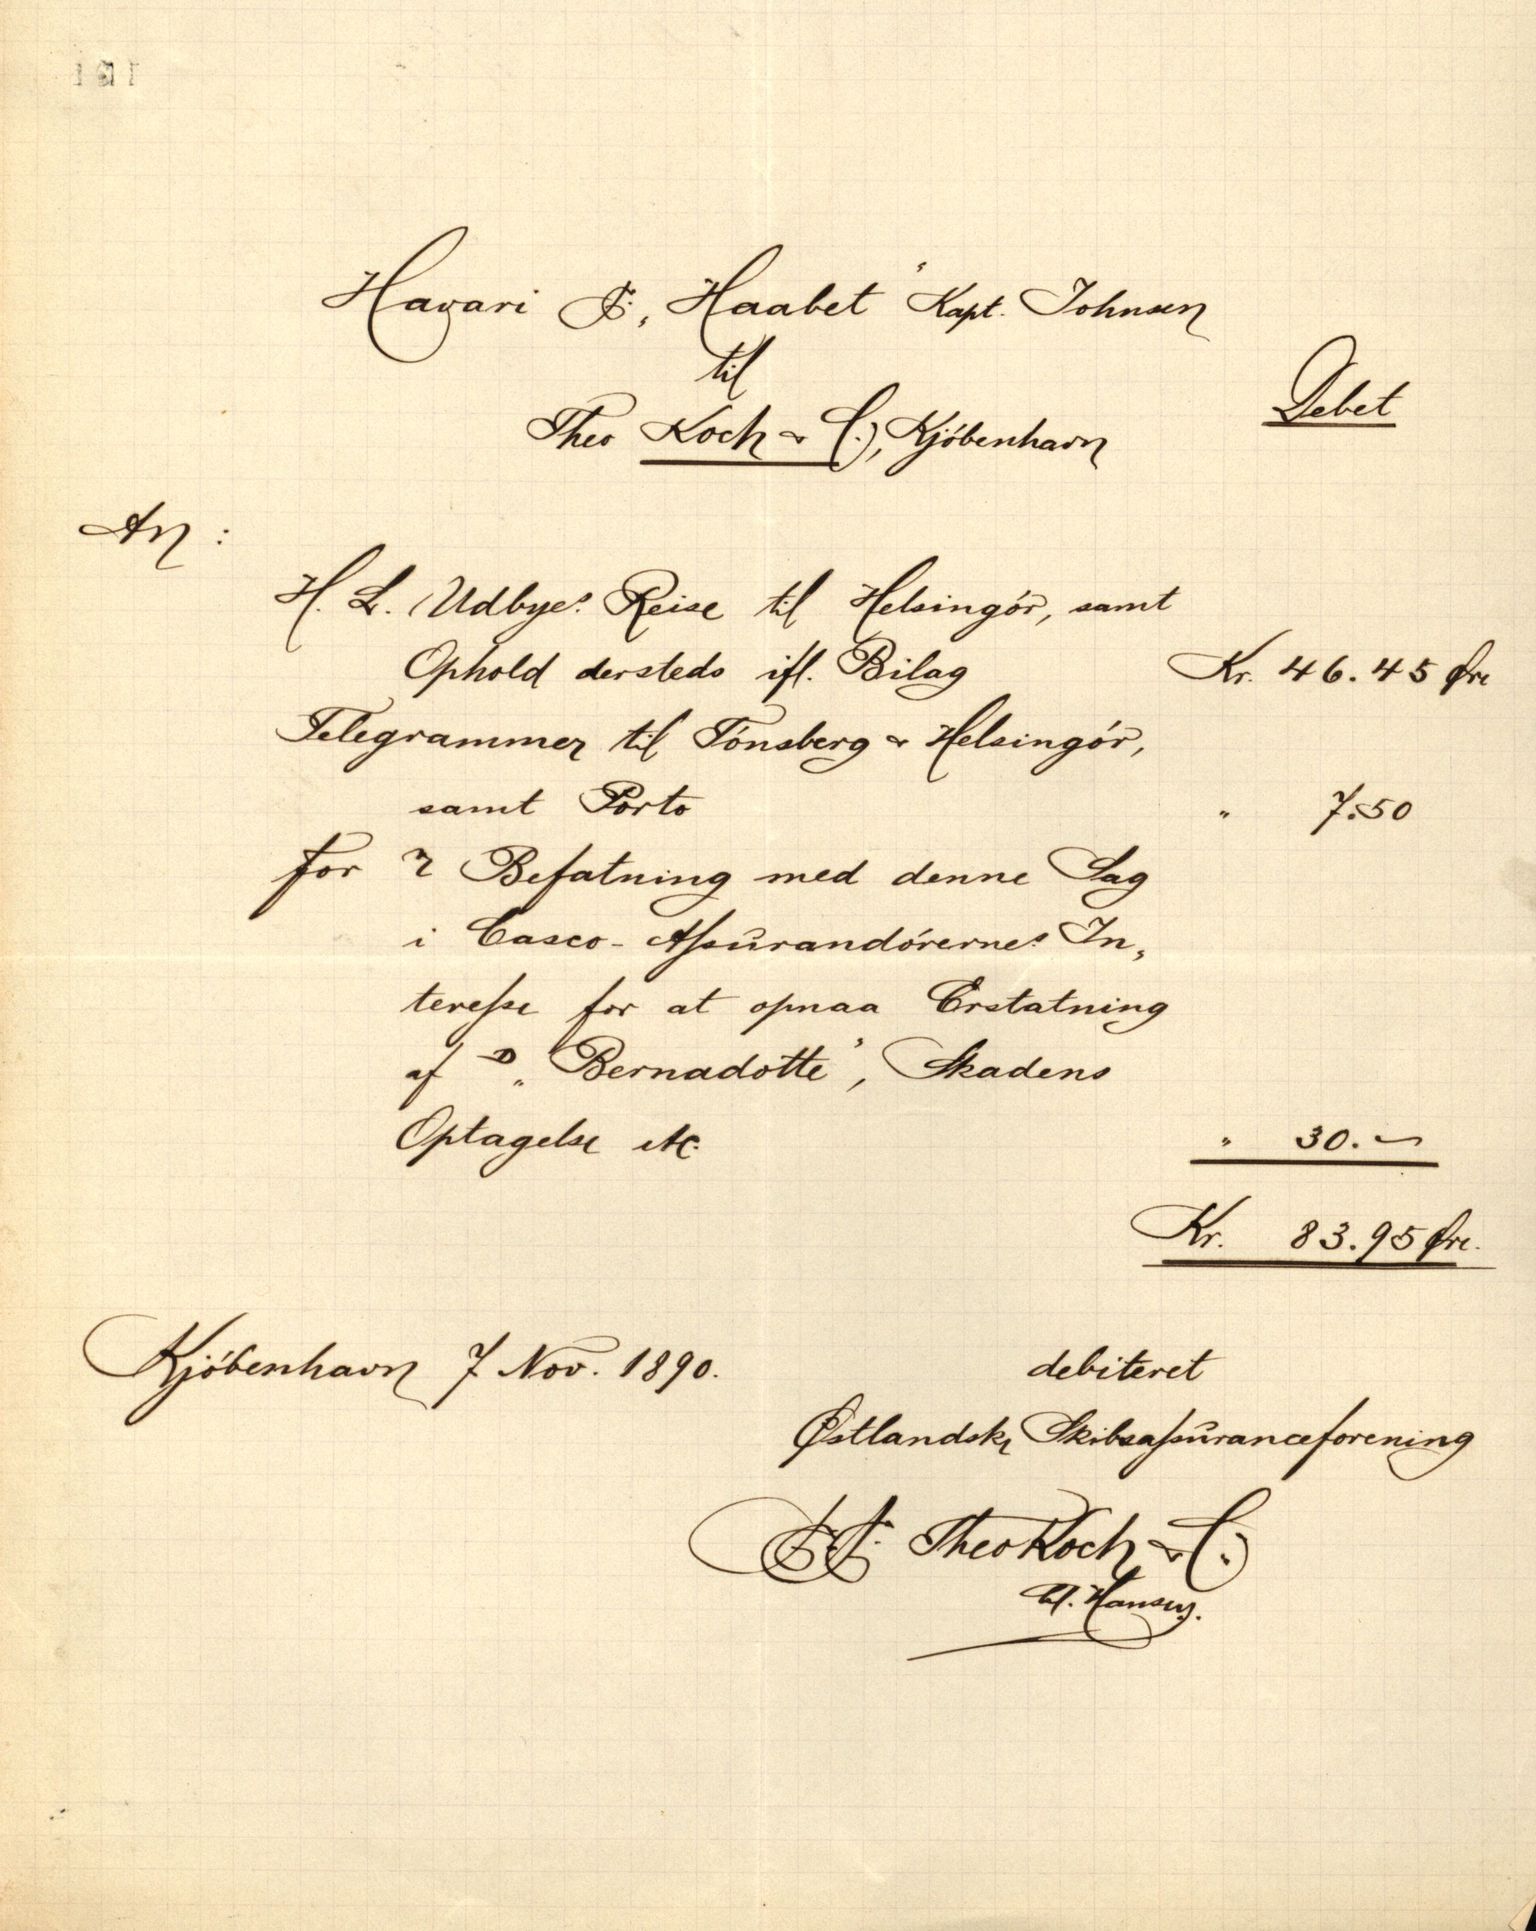 Havari S. „Haabet" Kapt. Johnsen
til
Debet
Theo Koch & C.), Kjöbenhavn
An :
H. L. Udbyes Reise til Helsingör, samt
Ophold dersteds ifl. Bilag Kr. 46.45 Øre
Telegrammer til Tönsberg & Helsingör,
samt Porto " 7.50
for Befatning med denne Sag
i Casco-Assurandörernes In„
teresse for at opnaa Erstatning
af D „Bernadotte", Skadens
Optagelse etc. " 30. —
Kr. 83.95 Øre.
Kjöbenhavn 7 Nov. 1890.
debiteret
Østlandske Skibsassuranceforening
Theo Koch & C.)
Hansen.